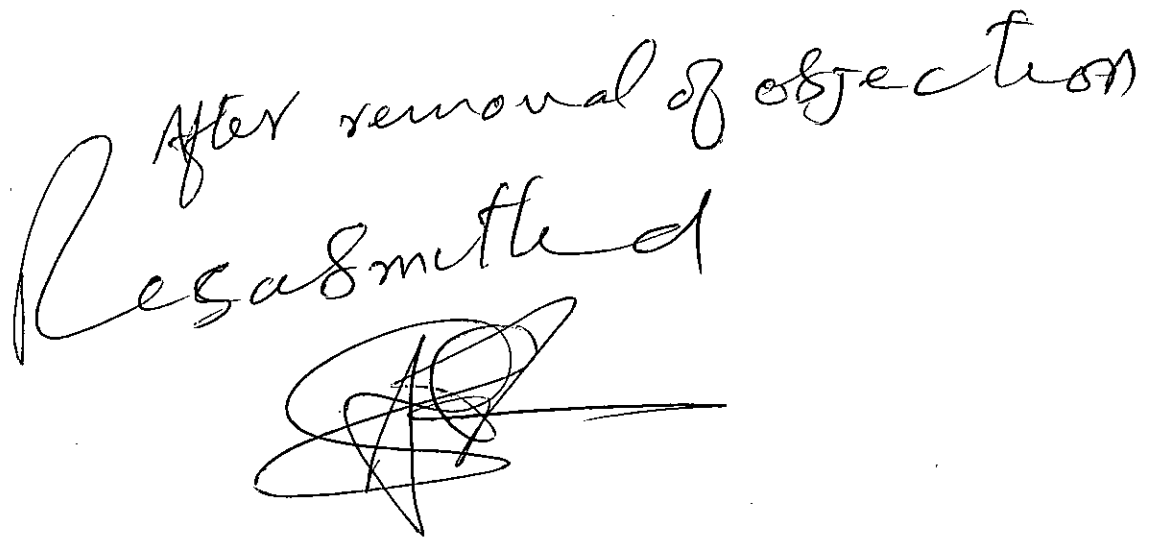 After removal of objection
Resasmitted